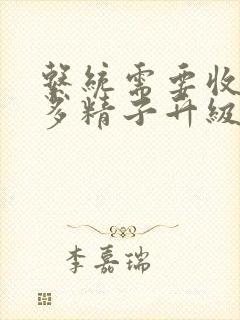 繫統需要收
多精子升級
李嘉瑞